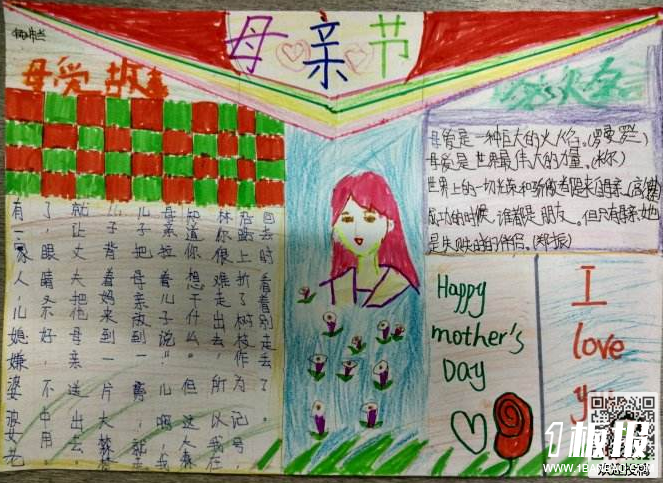 母亲节
母爱故事
有一家人,儿媳嫌婆婆老
了,眼睛不好,不中用
就让丈夫把他母亲送出去
儿子背着妈来到一片大森
儿子把母亲放到一旁,就
母亲拉着儿子说"儿啊,我
知道你想干什么。但这
林你很难走出去,所以我在
路上折了树枝作为记号,
回去时,看着别走丢了。
母爱是一种巨大的火焰。(罗曼罗兰)
母爱是世界最伟大的力量。(米尔)
世界上的一切光荣和骄傲都来自母亲(高尔基)
成功的时候,谁都是朋友。但只有母亲她
是失败时的伴侣。(郑振)
Happy
mother's
DAY
I
love
1板报
WWW.1BANBAO.COM
欢迎投稿